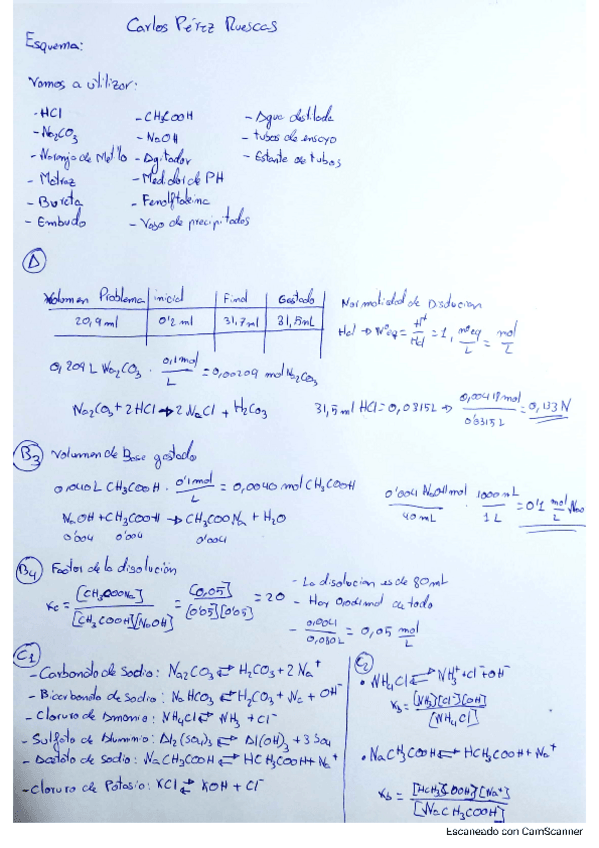 Carlos Pérez Ruescas
Esquema:
Vamos a utilizar:
- HCl - CH3COOH - Agua destilada
- Na2CO3 - NaOH - tubos de ensayo
- Naranja de Metilo - Agitador - Estante de tubos
- Matraz - Medidor de PH
- Bureta - Fenolftaleina
- Embudo - Vaso de precipitados
A
Volumen Problema inicial Final Gastado
20,9 ml 0'2 ml 31,7 ml 31,5 mL
Normalidad de Disolución
Hcl → nºeq = H+/Hcl = 1, nºeq/L = mol/L
0,209 L Na2CO3 · 0,1mol/L = 0,00209 mol Na2CO3
Na2CO3 + 2HCl → 2NaCl + H2CO3 31,5 ml HCl = 0,0315L → 0,00418mol/0'0315L = 0,133 N
B3 Volumen de Base gastado
0,040L CH3COOH · 0'1mol/L = 0,0040 mol CH3COOH
NaOH + CH3COOH → CH3COONa + H2O
0'004 0'004 0'004
0'004 mol/40 mL · 1000mL/1L = 0'1 mol/L
B4 Factor de la disolución
Kc = [CH3COONa]/[CH3COOH][NaOH] = [0,05]/[0'05][0'05] = 20
- La disolucion es de 80 ml
- Hay 0,004mol de todo
- 0,0041/0,080L = 0,05 mol/L
C1
- Carbonato de Sodio: Na2CO3 ⇄ H2CO3 + 2Na+
- Bicarbonato de sodio: NaHCO3 ⇄ H2CO3 + Na + OH-
- Cloruro de Amonio: NH4Cl ⇄ NH3 + Cl-
- Sulfato de Aluminio: Al2(SO4)3 ⇄ Al(OH)3 + 3SO4
- Acetato de Sodio: NaCH3COOH ⇄ HCH3COOH + Na+
- Cloruro de Potasio: KCl ⇄ KOH + Cl-
C2
• NH4Cl ⇄ NH3+ + Cl- + OH-
Kb = [NH3][Cl-][OH]/[NH4Cl]
• NaCH3COOH ⇄ HCH3COOH + Na+
Kb = [HCH3COOH][Na+]/[NaCH3COOH]
Escaneado con CamScanner